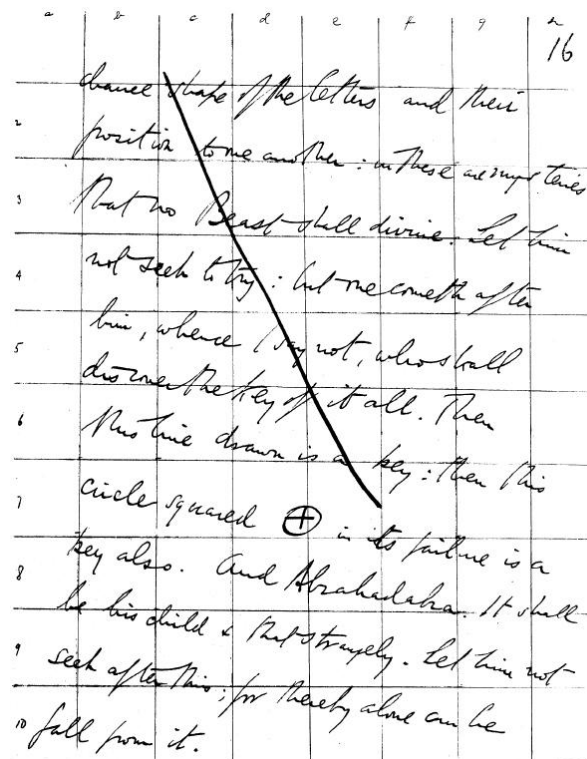 a b c d e f g h
16
chance shape of the letters and their
2 position to one another : in these are mysteries
3 that no Beast shall divine. Let him
4 not seek to try : but one cometh after
him, whence I say not, who shall
5 discover the key of it all. Then
6 this line drawn is a key : then this
7 circle squared in its failure is a
8 key also. And Abrahadabra. It shall
be his child & that strangely. Let him not
9 seek after this ; for thereby alone can he
10 fall from it.